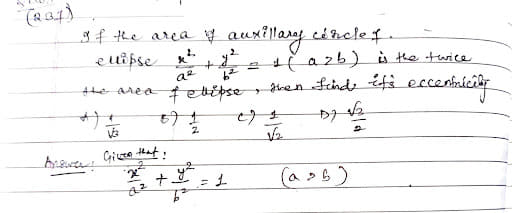 (Q37)
If the area of auxillary circle of
ellipse x²/a² + y²/b² = 1 (a>b) is the twice
the area of ellipse, then find it's eccentricity
A) 1/√3 B) 1/2 C) 1/√2 D) √2/2
Answer: Given that:
x²/a² + y²/b² = 1 (a>b)